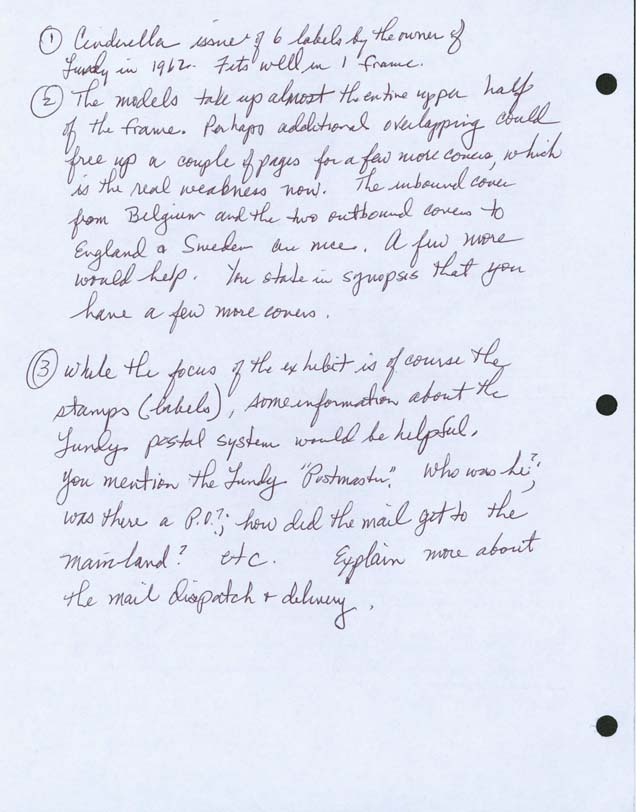 ① Cinderella issue of 6 labels by the owner of
Lundy in 1962. Fits well in 1 frame.
② The models take up almost the entire upper half
of the frame. Perhaps additional overlapping could
free up a couple of pages for a few more covers, which
is the real weakness now. The inbound cover
from Belgium and the two outbound covers to
England & Sweden are nice. A few more
would help. You state in synopsis that you
have a few more covers.
③ While the focus of the exhibit is of course the
stamps (labels), some information about the
Lundy postal system would be helpful.
You mention the Lundy "Postmaster". Who was he?;
was there a P.O.?; how did the mail get to the
mainland? etc. Explain more about
the mail dispatch + delivery.